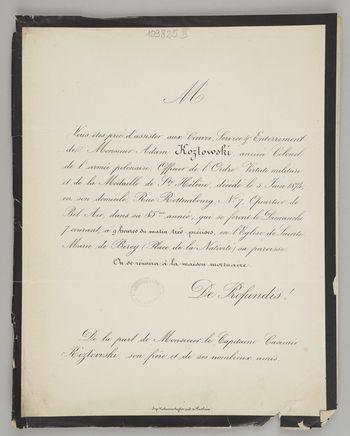 109825 III
M
Vous êtes prié d'assister aux Convoi, Service & Enterrement
de Monsieur Adam Kozłowski, ancien Colonel
de l'armée polonaise, Officier de l'Ordre Virtuti militari
et de la Médaille de Ste Hélène, décédé le 5 Juin 1874,
en son domicile, Rue Rottembourg, No 7, Quartier de
Bel Air, dans sa année, qui se feront le Dimanche
7 courant, à 9 heures du matin très précises, en l'Eglise de Sainte
Marie de Bercy (Place de la Nativité) sa paroisse.
On se réunira à la maison mortuaire.
De Profundis!
De la part de Monsieur le Capitaine Casimir
Kozłowski son frère et de ses nombreux amis.